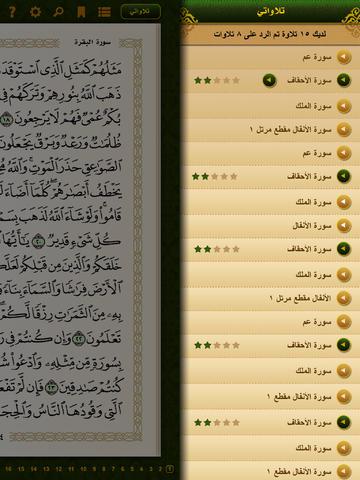 تلاواتي
لديك ١٥ تلاوة تم الرد على ٨ تلاوات
سورة عم
سورة الأحقاف
سورة الملك
سورة الأنفال مقطع مرتل ١
سورة عم
سورة الأحقاف
سورة الملك
سورة الأنفال
سورة الأحقاف
سورة الملك
الأنفال مقطع مرتل ١
سورة عم
سورة الأحقاف
سورة الملك
سورة الأنفال مقطع ١
سورة الأحقاف
سورة الملك
سورة الأنفال مقطع ١
تلاواتي
سورة البقرة
مَثَلُهُمْ كَمَثَلِ ٱلَّذِى ٱسْتَوْقَدَ
ذَهَبَ ٱللَّهُ بِنُورِهِمْ وَتَرَكَهُمْ فِى
بُكْمٌ عُمْىٌ فَهُمْ لَا يَرْجِعُونَ ١٨
ظُلُمَٰتٌ وَرَعْدٌ وَبَرْقٌ يَجْعَلُونَ
ٱلصَّوَٰعِقِ حَذَرَ ٱلْمَوْتِ وَٱللَّهُ
يَخْطَفُ أَبْصَٰرَهُمْ كُلَّمَآ أَضَآءَ
قَامُوا۟ وَلَوْ شَآءَ ٱللَّهُ لَذَهَبَ
كُلِّ شَىْءٍ قَدِيرٌ ٢٠ يَٰٓأَيُّهَا
وَٱلَّذِينَ مِن قَبْلِكُمْ لَعَلَّكُمْ
ٱلْأَرْضَ فِرَٰشًا وَٱلسَّمَآءَ بِنَآءً
بِهِۦ مِنَ ٱلثَّمَرَٰتِ رِزْقًا لَّكُمْ
تَعْلَمُونَ ٢٢ وَإِن كُنتُمْ فِى
بِسُورَةٍ مِّن مِّثْلِهِۦ وَٱدْعُوا۟
كُنتُمْ صَٰدِقِينَ ٢٣ فَإِن لَّمْ
ٱلَّتِى وَقُودُهَا ٱلنَّاسُ
16 15 14 13 12 11 10 9 8 7 6 5 4 3 2 1